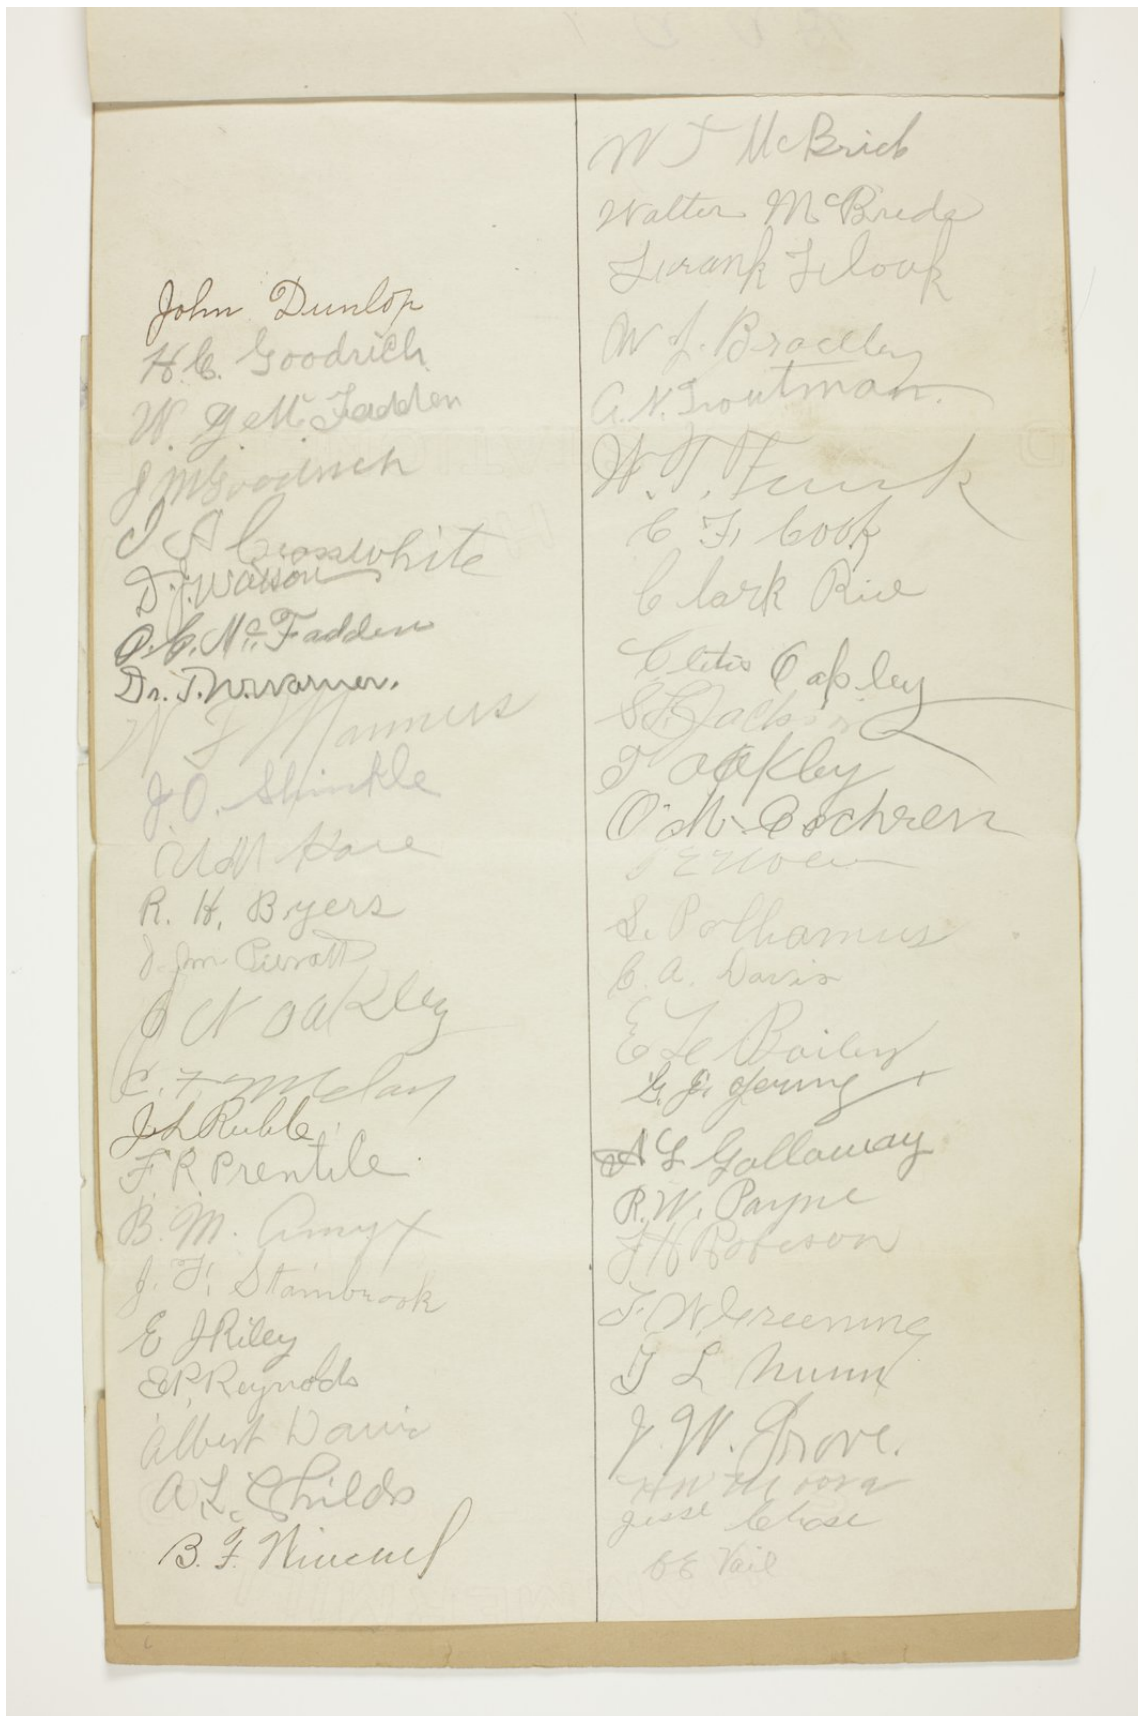 John Dunlop
H. C. Goodrich
W. McFadden
J M Goodrich
J A Crosswhite
D. J. Watson
O. C. McFadden
Dr. T. W. Warner.
W F Manners
J. O. Shinkle
Hare
R. H. Byers
J. M. Pieratt
N Oakley
C. F. McClay
J L Ruble
F R Prentice
B. M. Amyx
J. F. Stambrook
E J Riley
E. P. Reynolds
Albert Davis
A. L. Childs
B. F.
W J McBride
Walter McBride
Frank Flook
W. J. Bradley
A. N. Troutman.
W. T. Funk
C F. Cook
Clark Rice
Cletis Oakley
Jackson
T Oakley
O. M. Cochren
S. Polhamus
C. A. Davis
E Le Bailey
G. E. Young
A L Gallaway
R. W. Payne
J H Robison
F. W. Greening
T L Nunn
J. W. Grove.
H W Moora
Jesse Chase
C E Vail